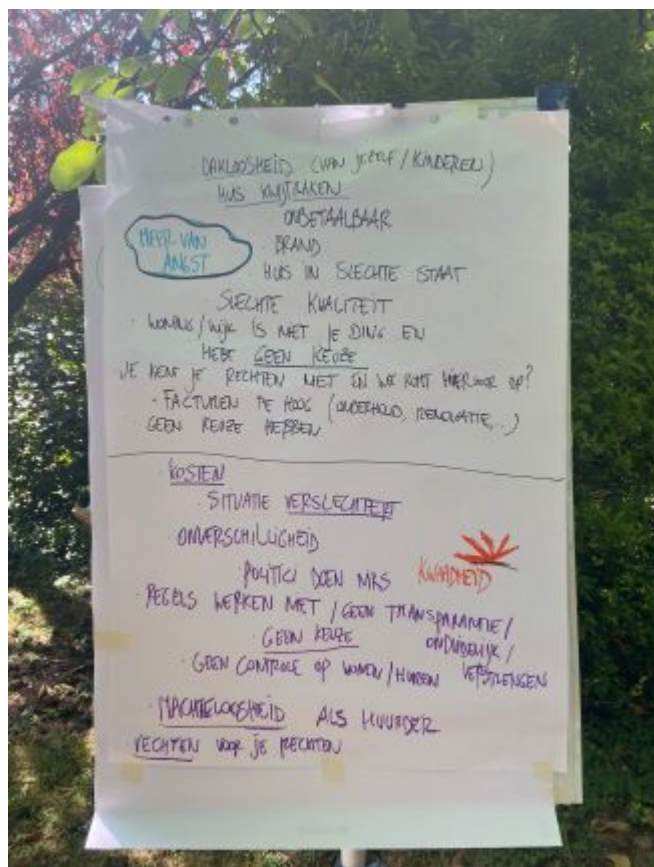 DAKLOOSHEID (VAN JEZELF / KINDEREN)
HUIS KWIJTRAKEN
ONBETAALBAAR
MEER VAN
ANGST
BRAND
HUIS IN SLECHTE STAAT
SLECHTE KWALITEIT
· WONING / WIJK IS NIET JE DING EN
HEBT GEEN KEUZE
JE KENT JE RECHTEN NIET EN WE KOMT HIERVOOR OP?
· FACTUREN TE HOOG (ONDERHOUD, RENOVATIE, ...)
· GEEN KEUZE HEBBEN
· KOSTEN
· SITUATIE VERSLECHTERT
ONVERSCHILLIGHEID
· POLITICI DOEN NIKS
KWAADHEID
· REGELS WERKEN NIET / GEEN TRANSPARANTIE /
ONDUIDELIJK /
VERSTRENGEN
· GEEN KEUZE
· GEEN CONTROLE OP WONEN / HUREN
· MACHTELOOSHEID ALS HUURDER
VECHTEN VOOR JE RECHTEN